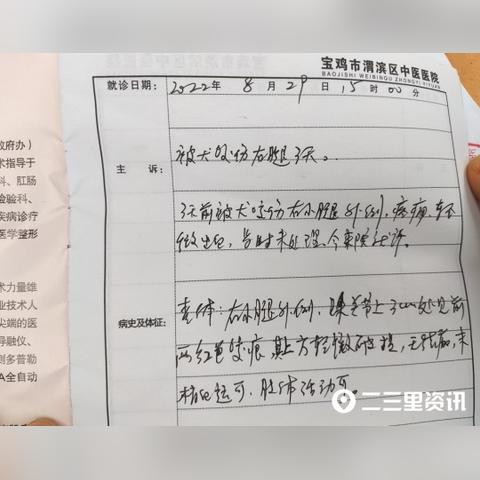 宝鸡市渭滨区中医医院
BAOJISHI WEIBINQU ZHONGYI YIYUAN
就诊日期: 2022 年 8 月 29 日 15 时 00 分
政府办)
术指导于
科、肛肠
验科、
疾病诊疗
医学整形
主 诉: 被犬咬伤右腿3天。
3天前被犬咬伤右小腿外侧, 疼痛, 轻
微出血, 当时未处理, 今来院就诊。
术力量雄
业技术人
尖端的医
导融仪、
测多普勒
A全自动
病史及体征: 查体: 右小腿外侧, 踝关节上3cm处见前
两红色咬痕, 其上方轻微破损, 无
末梢血运可, 肢体活动可。
二三里资讯